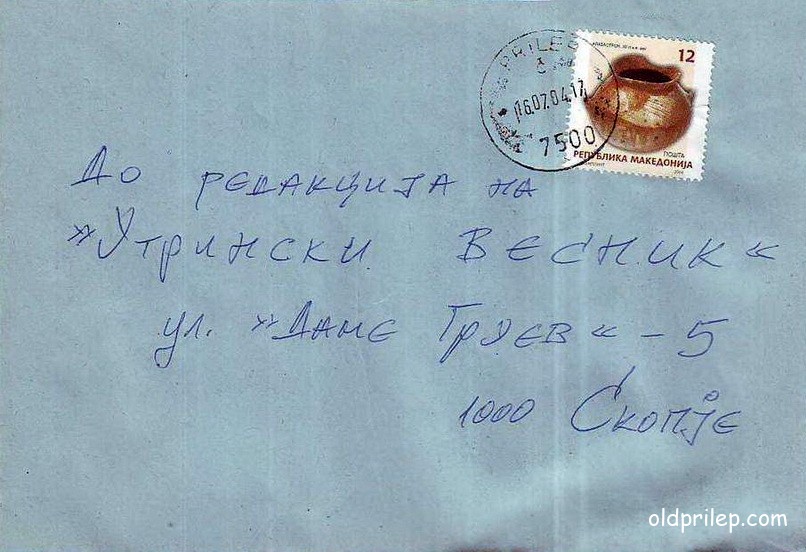 PRILEP
16.07.04.17
7500
12
РЕПУБЛИКА МАКЕДОНИЈА
ПОШТА
До редакција на
»Утрински Весник«
ул. »Даме Груев« - 5
1000 Скопје
oldprilep.com